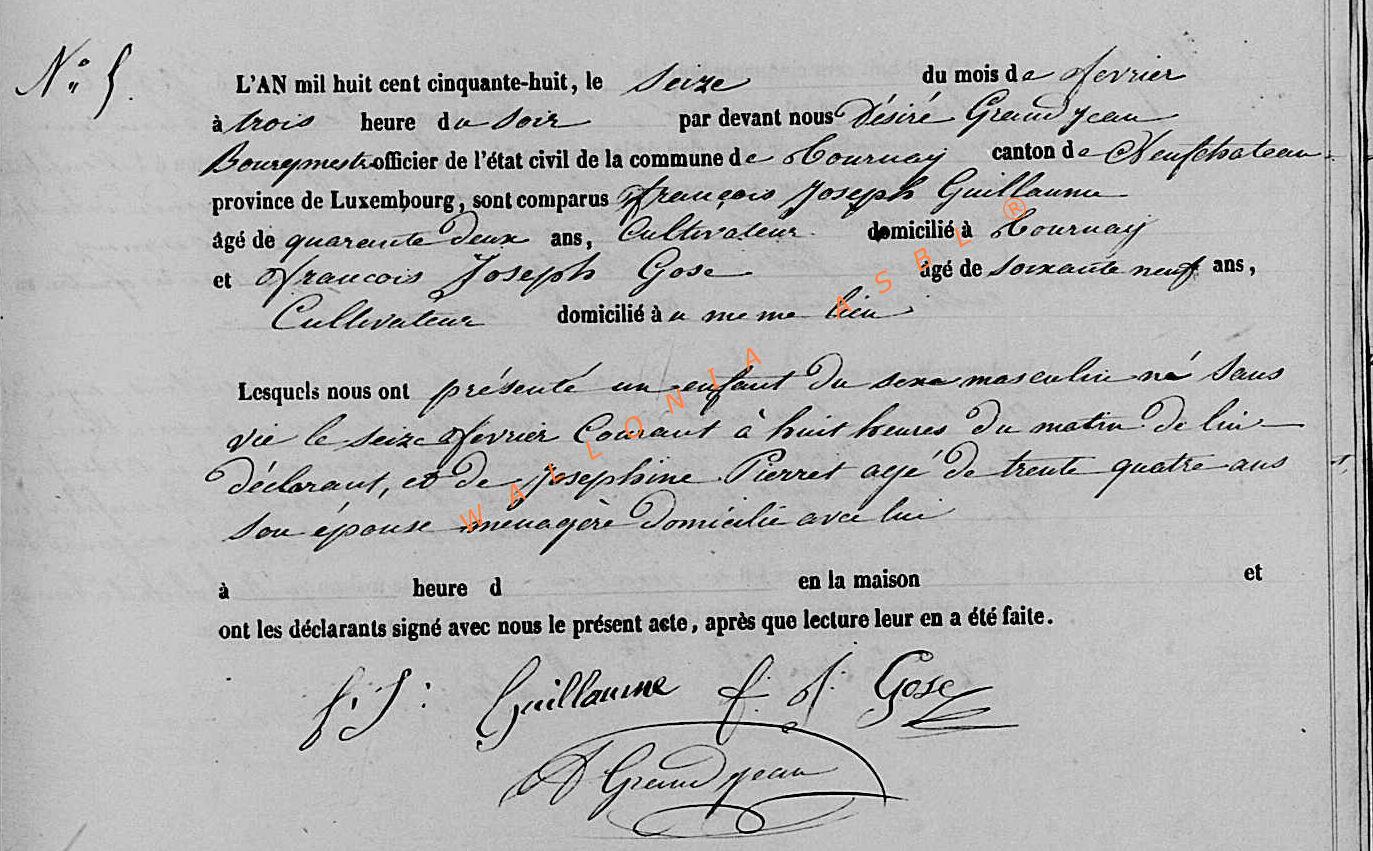 N° 5.
L'AN mil huit cent cinquante-huit, le Seize du mois de fevrier
à trois heure du Soir par devant nous Désiré Grandjean
Bourgmestre officier de l'état civil de la commune de Tournay canton de Neufchateau
province de Luxembourg, sont comparus françois Joseph Guillaume
âgé de quarante deux ans, Cultivateur domicilié à Tournay
et francois Joseph Gose âgé de soixante neuf ans,
Cultivateur domicilié à u meme lieu
Lesquels nous ont présenté un enfant du sexe masculin né Sans
vie le seize fevrier Courant à huit heures du matin de lui
déclarant, et de Josephine Pierret agé de trente quatre ans
son épouse ménagère domicilié avec lui
à heure d en la maison et
ont les déclarants signé avec nous le présent acte, après que lecture leur en a été faite.
f. J: Guillaume f: J: Gose
D Grandjean
WALLONIA ASBL ®